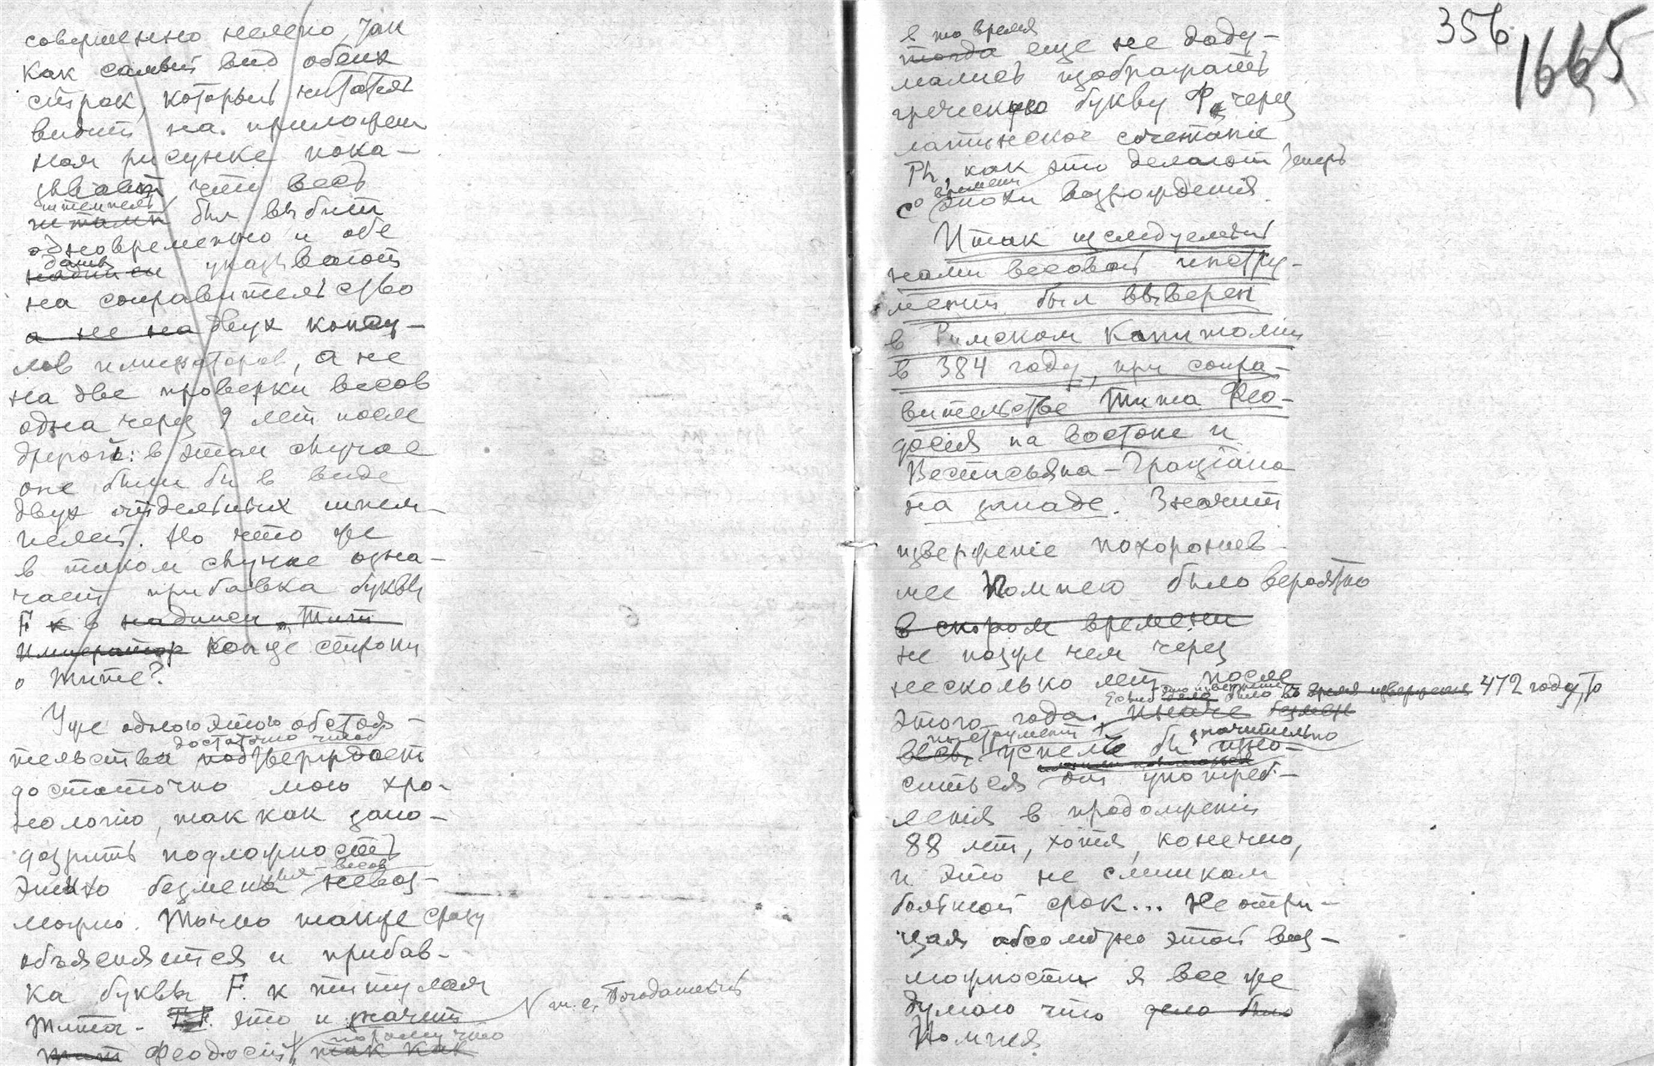 совершенно нелепо, так
как самый вид обеих
строк, которыя читатель
видит на приложен
ном рисунке пока-
зывает, что весь
штемпель
штамп был выбит
одновременно и обе
даты
надписи указывают
на соправительство
а не на двух консу-
лов императоров, а не
на две проверки весов
одна через 9 лет после
другой: в этом случае
оне были бы в виде
двух отдельных штем-
пелей. Но что же
в таком случае озна-
чает прибавка буквы
F к в надписи Тит
Император конце строки
о Тите?
Уже одного этого обстоя-
достаточно чтоб
тельства подтверждает
достаточно мою хро-
нологию, так как запо-
дозрить подложность
весов
этого безмена невоз-
можно. Точно также сразу
объясняется и прибав-
ка буквы F. к титулам
Тита - T.F. это и значит
N т. е. Богоданный
потому что
Тит Феодосий так как
356
1665
в то время
тогда еще не доду-
мались изображать
греческую букву Ф, через
латинское сочетание
Ph, как это делают теперь
времени
со эпохи возрождения.
Итак изследуемый
нами весовой инстру-
мент был выверен
в Римском Капитолии
в 384 году, при сопра-
вительстве Тита Фео-
досия на востоке и
Веспасьяна-Грациана
на западе. Значит
извержение похоронив-
шее Помпею было вероятно
в скором времени
не позже чем через
несколько лет после
это извержение было во время извержения 472 году, то
этого года. Иначе безмен
инструмент значительно
весь успел бы изно-
ситься от употреб-
ления в продолжении
88 лет, хотя, конечно,
и это не слишком
большой срок... Не отри-
цая абсолютно этой воз-
можности я все же
думаю что дело было
Помпея